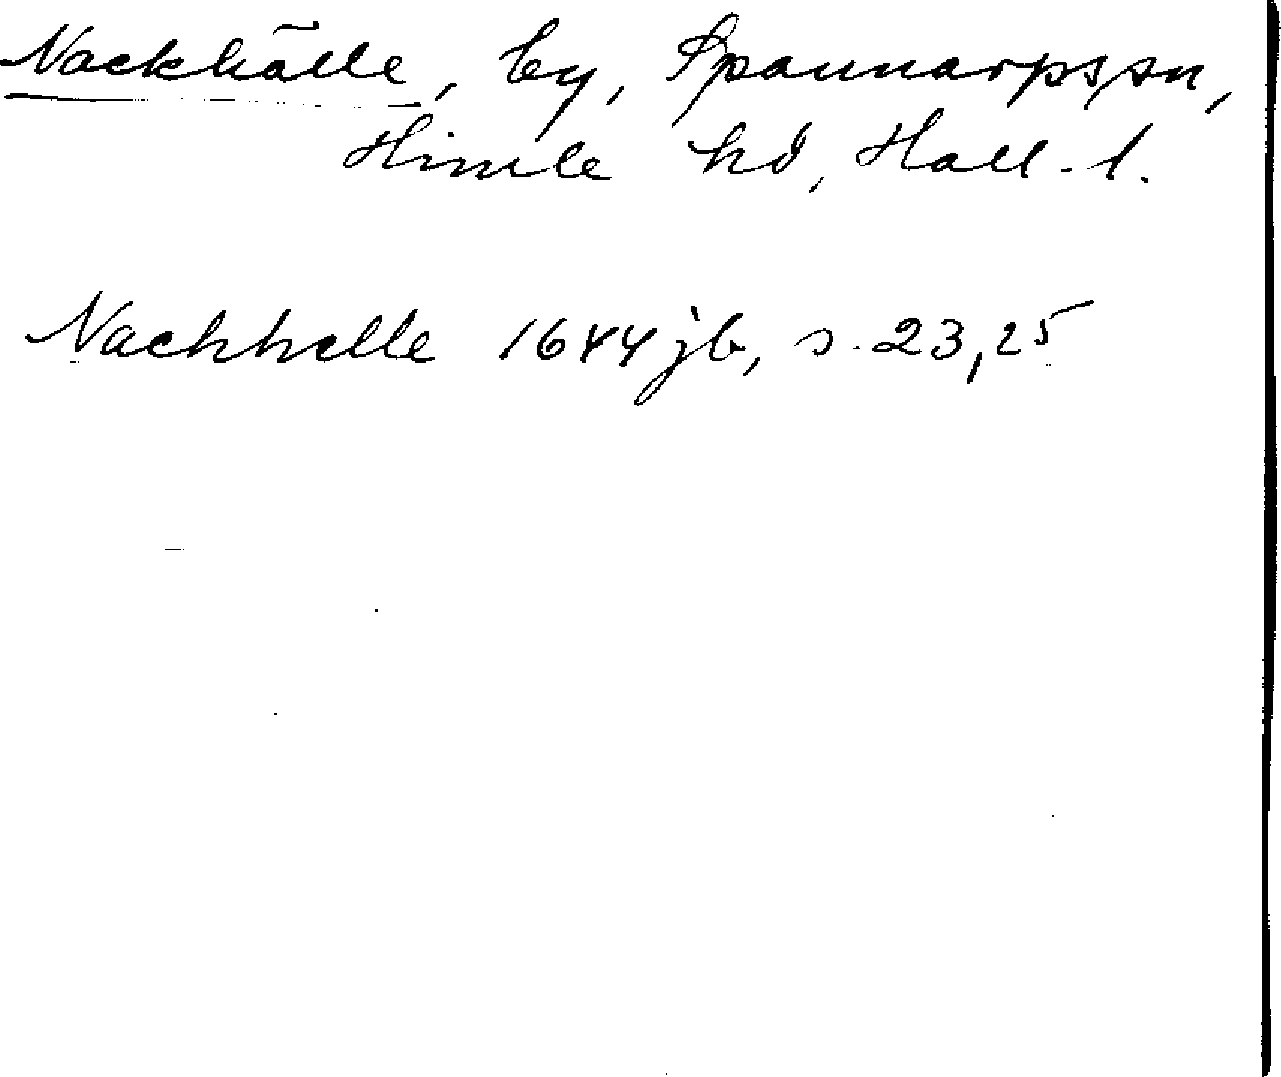 Nackhälle, by, Spannarps sn,
Himle hd, Hall. l.
Nachhelle 1644 jb, s. 23, 25